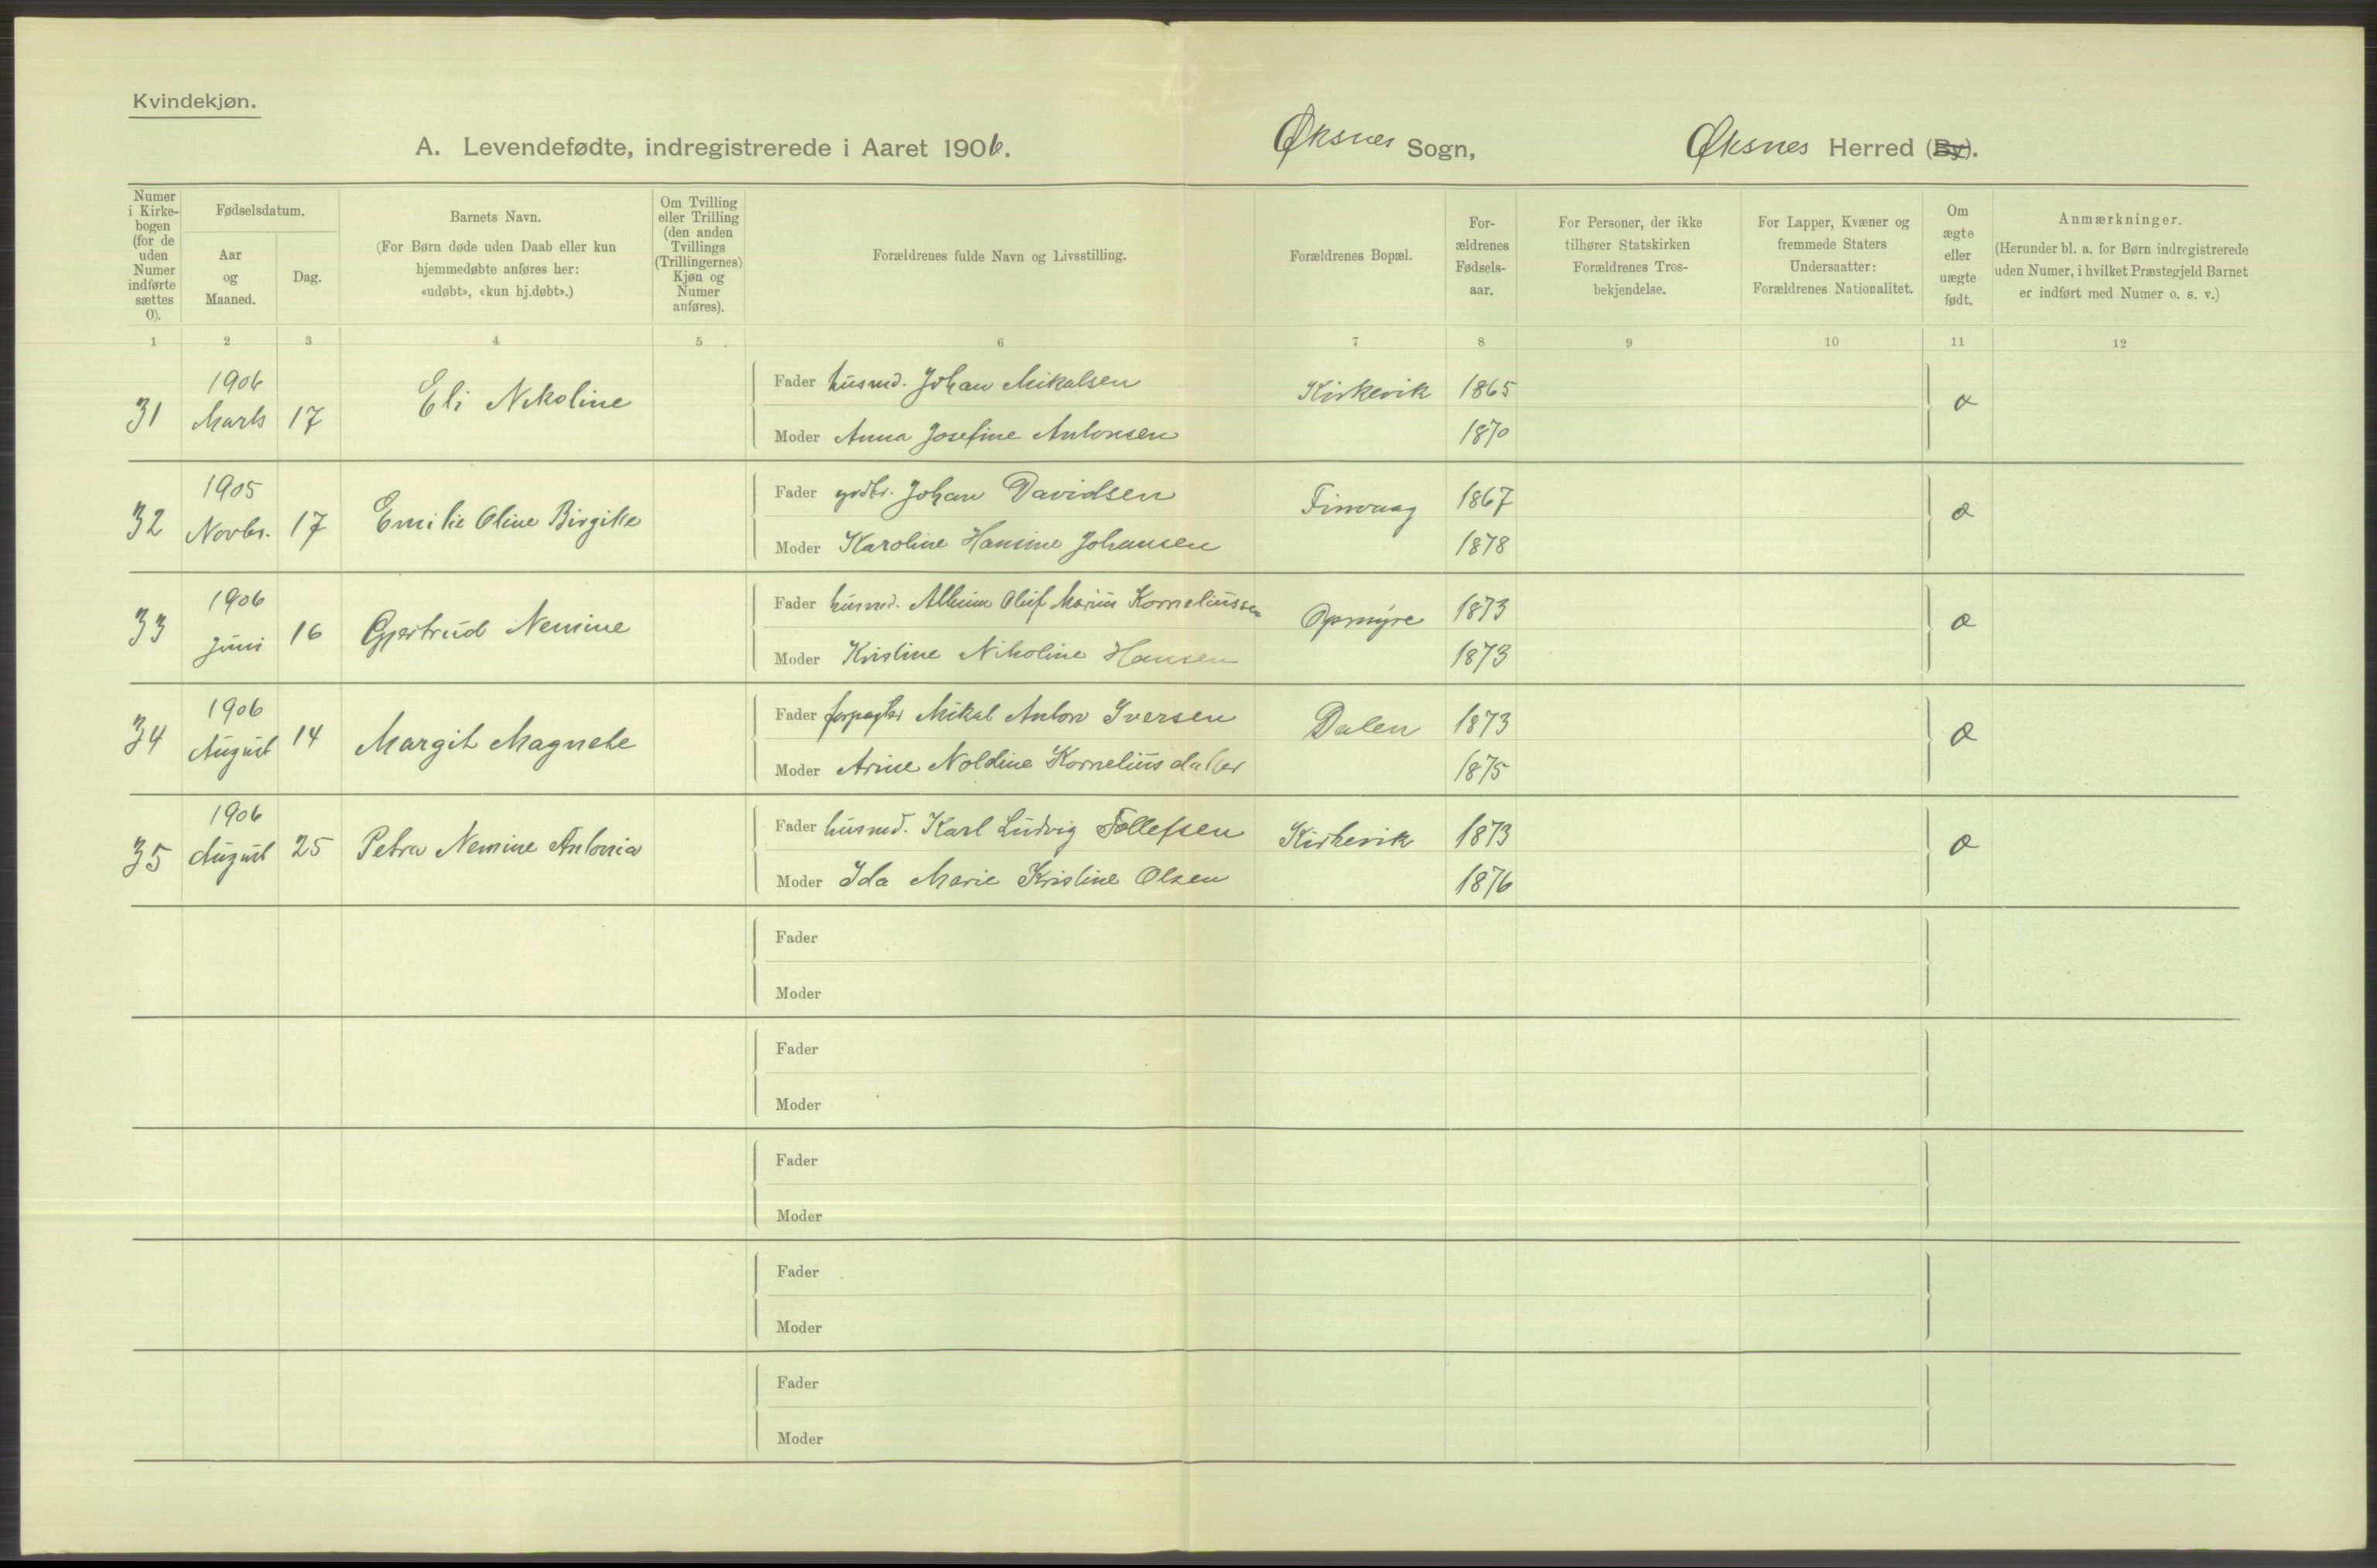 Kvindekjøn.
A. Levendefødte, indregistrerede i Aaret 1906.
Øksnes Sogn,
Øksnes Herred (By).
Numer i Kirke-bogen (for de uden Numer indførte sættes 0).
Fødselsdatum.
Aar og Maaned.
Dag.
Barnets Navn.
(For Børn døde uden Daab eller kun hjemmedøbte anføres her: «udøbt», «kun hj.døbt».)
Om Tvilling eller Trilling (den anden Tvillings (Trillingernes) Kjøn og Numer anføres).
Forældrenes fulde Navn og Livsstilling.
Forældrenes Bopæl.
For-ældrenes Fødsels-aar.
For Personer, der ikke tilhører Statskirken Forældrenes Tros-bekjendelse.
For Lapper, Kvæner og fremmede Staters Undersaatter: Forældrenes Nationalitet.
Om ægte eller uægte født.
Anmærkninger.
(Herunder bl. a. for Børn indregistrerede uden Numer, i hvilket Præstegjeld Barnet er indført med Numer o. s. v.)
1 2 3 4 5 6 7 8 9 10 11 12
31 1906 Marts 17 Eli Nikoline
Fader husmd. Johan Mikalsen Kirkevik 1865 æ
Moder Anna Josefine Antonsen 1870
32 1905 Novbr. 17 Emilie Oline Birgitte
Fader grdbr. Johan Davidsen Finvaag 1867 æ
Moder Karoline Hansine Johansen 1878
33 1906 Juni 16 Gjertrud Nemine
Fader husmd. Oluf Marius Korneliussen 1873 æ
Moder Kristine Nikoline Hansen 1873
34 1906 August 14 Margit Magnete
Fader forpagter Mikal Anton Iversen Dalen 1873 æ
Moder Arine Noldine Korneliusdatter 1875
35 1906 August 25 Petra Nemine Antonia
Fader husmd. Karl Ludvig Tollefsen Kirkevik 1873 æ
Moder Ida Marie Kristine Olsen 1876
Fader
Moder
Fader
Moder
Fader
Moder
Fader
Moder
Fader
Moder